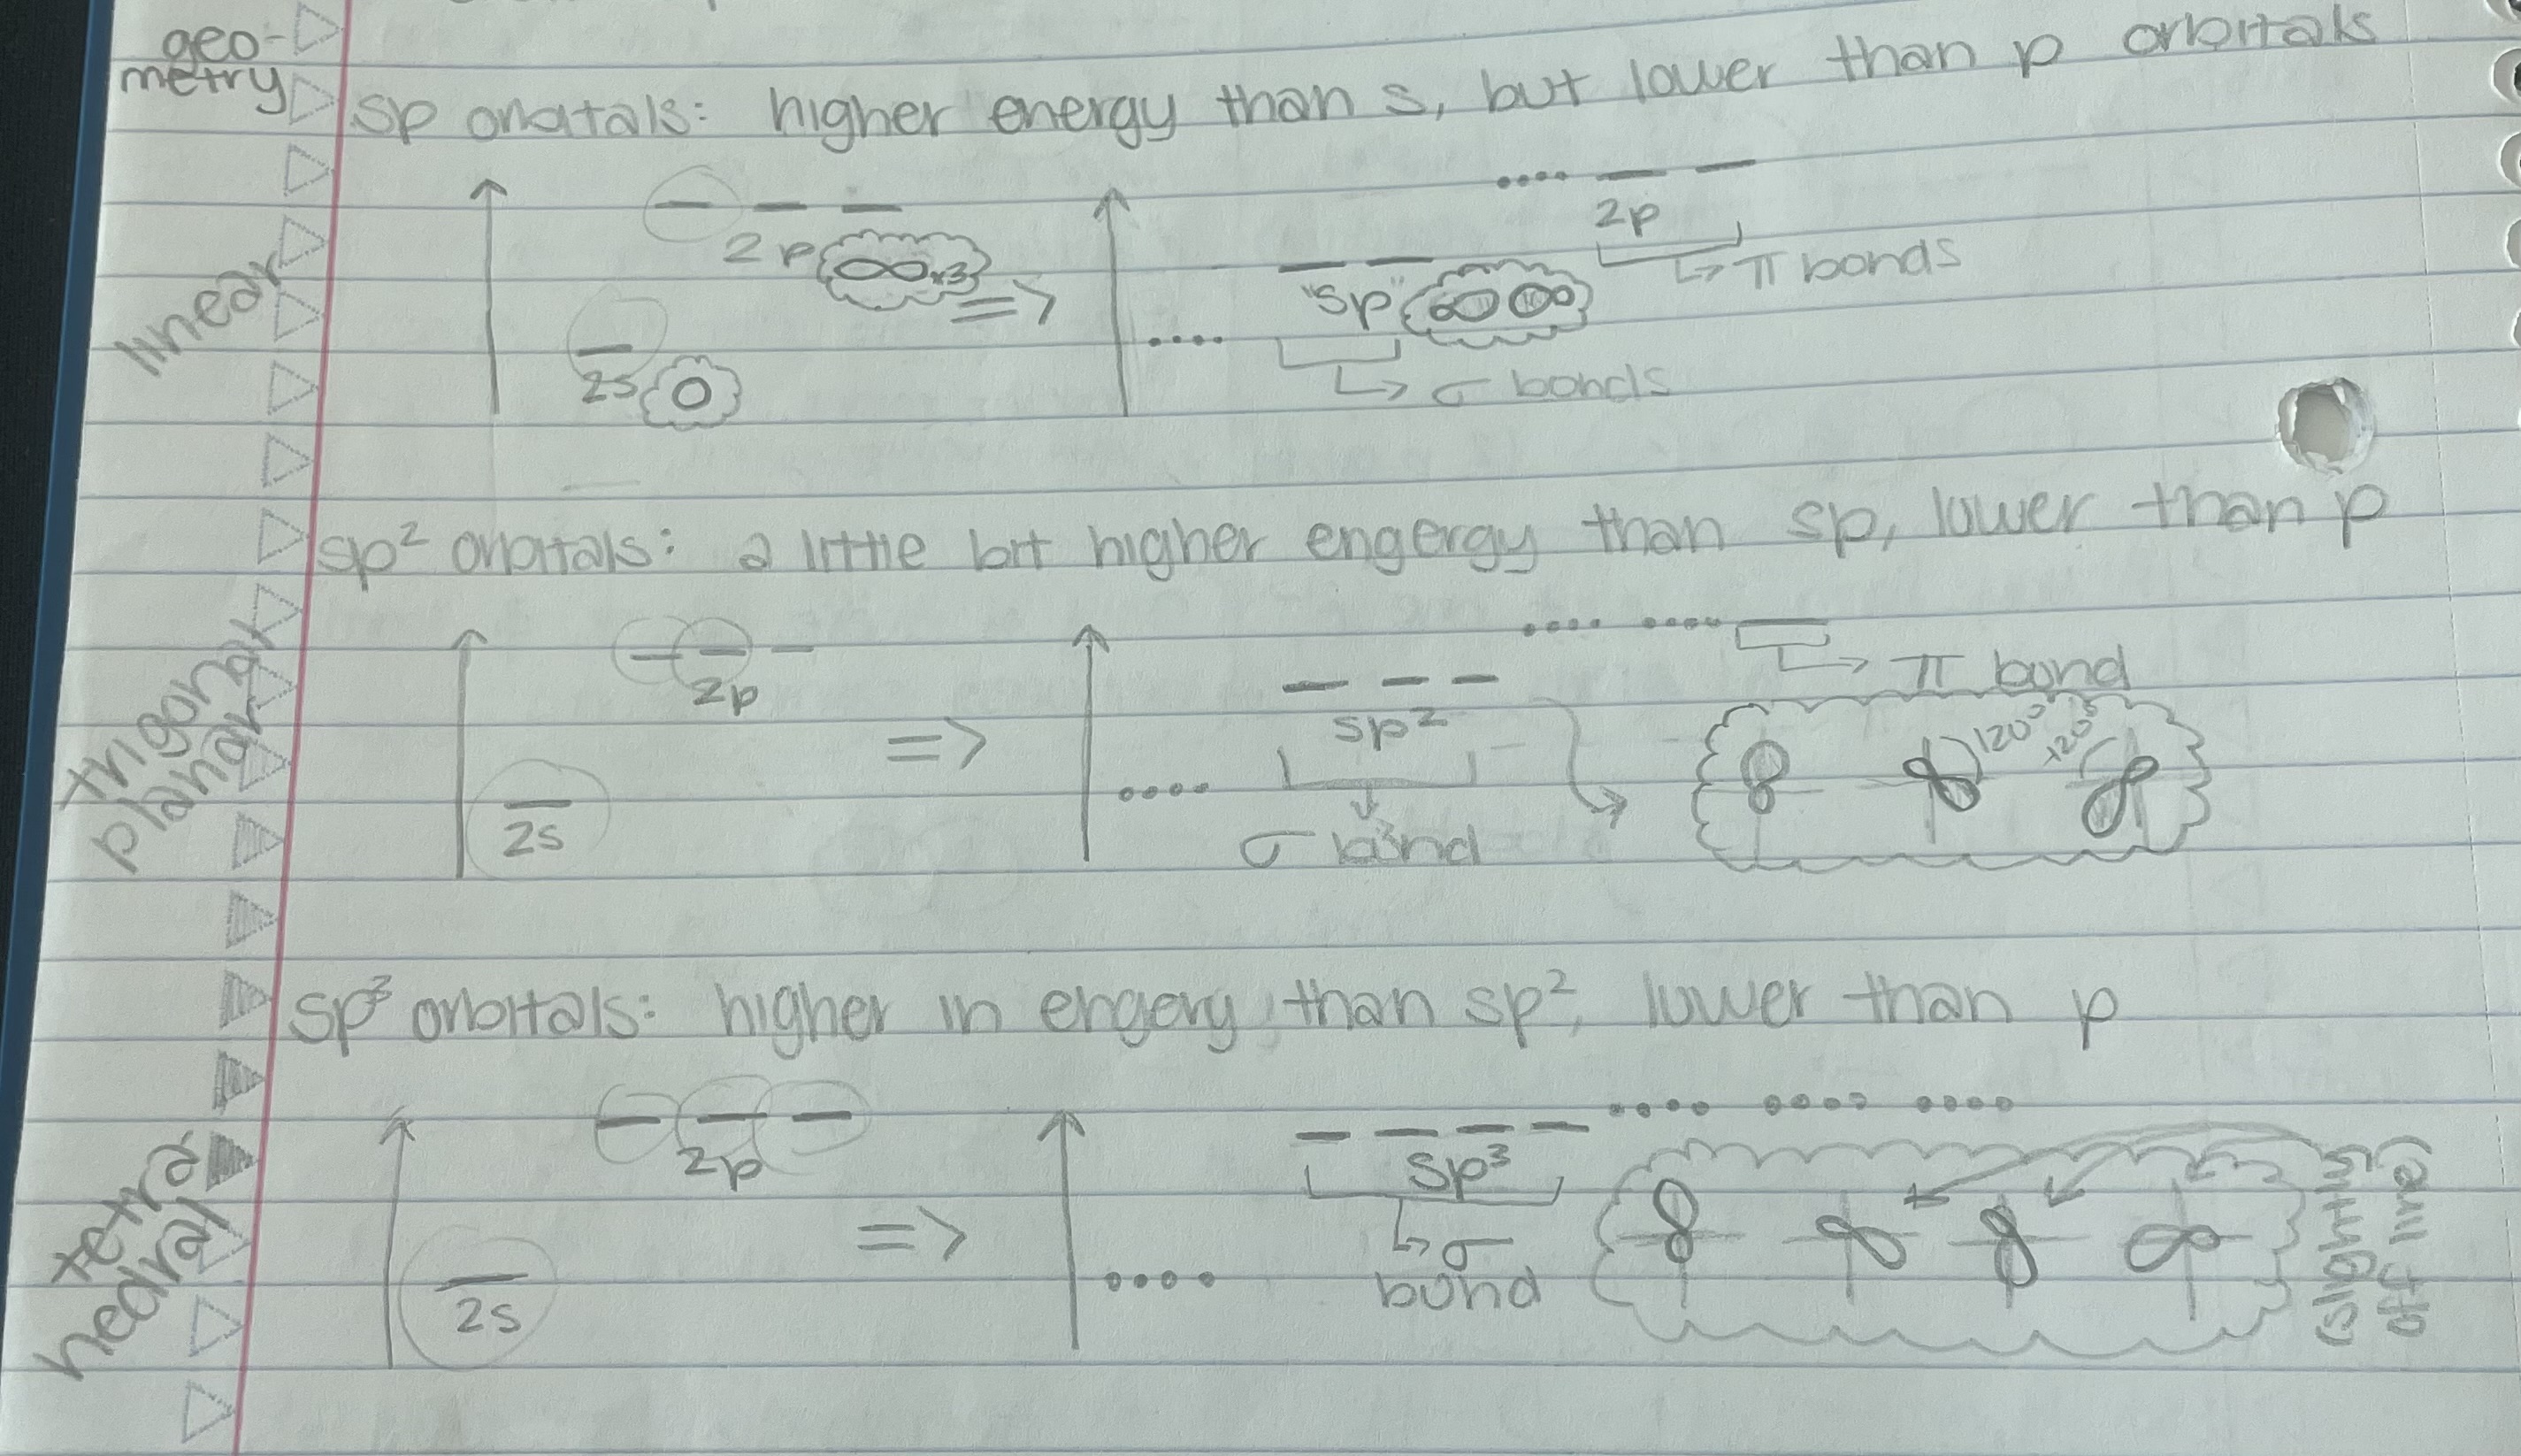 geo-
metry
sp orbitals: higher energy than s, but lower than p orbitals
linear
2p x3
2s
=>
2p
π bonds
"sp"
σ bonds
sp² orbitals: a little bit higher engergy than sp, lower than p
trigonal
planar
2p
2s
=>
π bond
sp²
σ bond
120°
120°
sp³ orbitals: higher in engery, than sp², lower than p
tetra
hedral
2p
2s
=>
sp³
σ
bond
(slightly
off line)